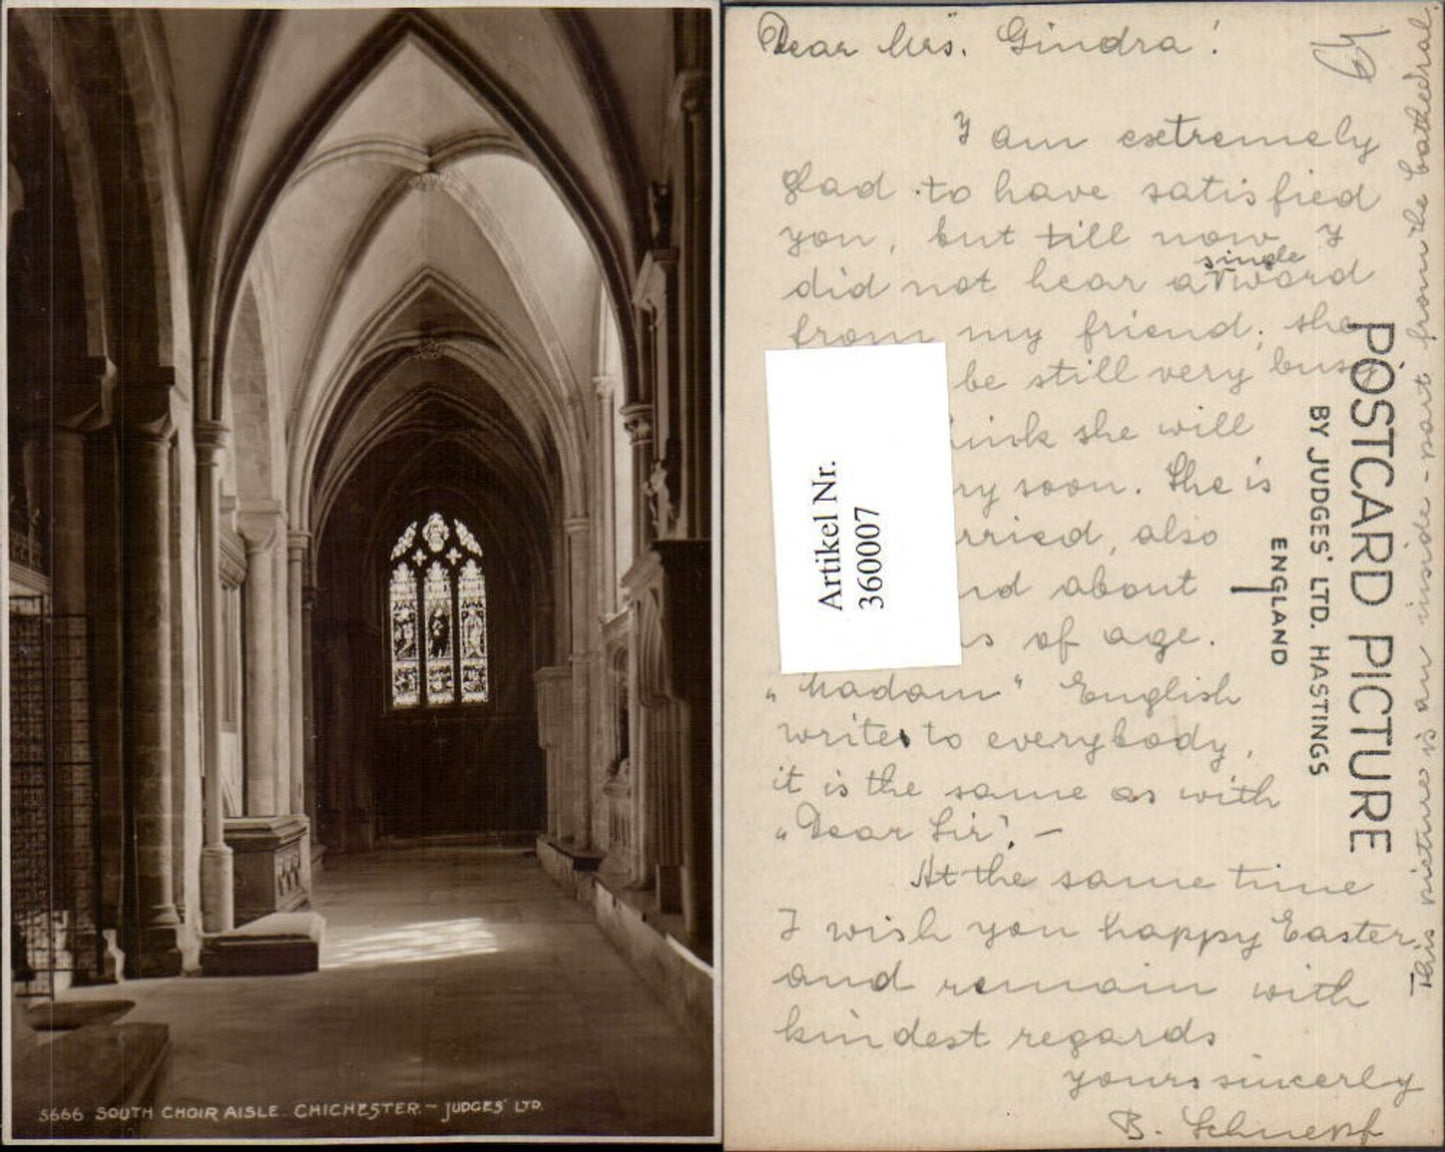 5666 SOUTH CHOIR AISLE. CHICHESTER. – JUDGES' LTD.
Dear Mrs. Gindra!
I am extremely
glad to have satisfied
you, but till now I
did not hear a single word
from my friend; she
be still very busy
she will
soon. She is
also
about
of age.
„Madam" English
writes to everybody,
it is the same as with
„Dear Sir". –
At the same time
I wish you happy Easter
and remain with
kindest regards
yours sincerly
B. Schnepf
This picture is an inside-part from the Cathedral.
POSTCARD PICTURE
BY JUDGES' LTD. HASTINGS
ENGLAND
Artikel Nr.
360007